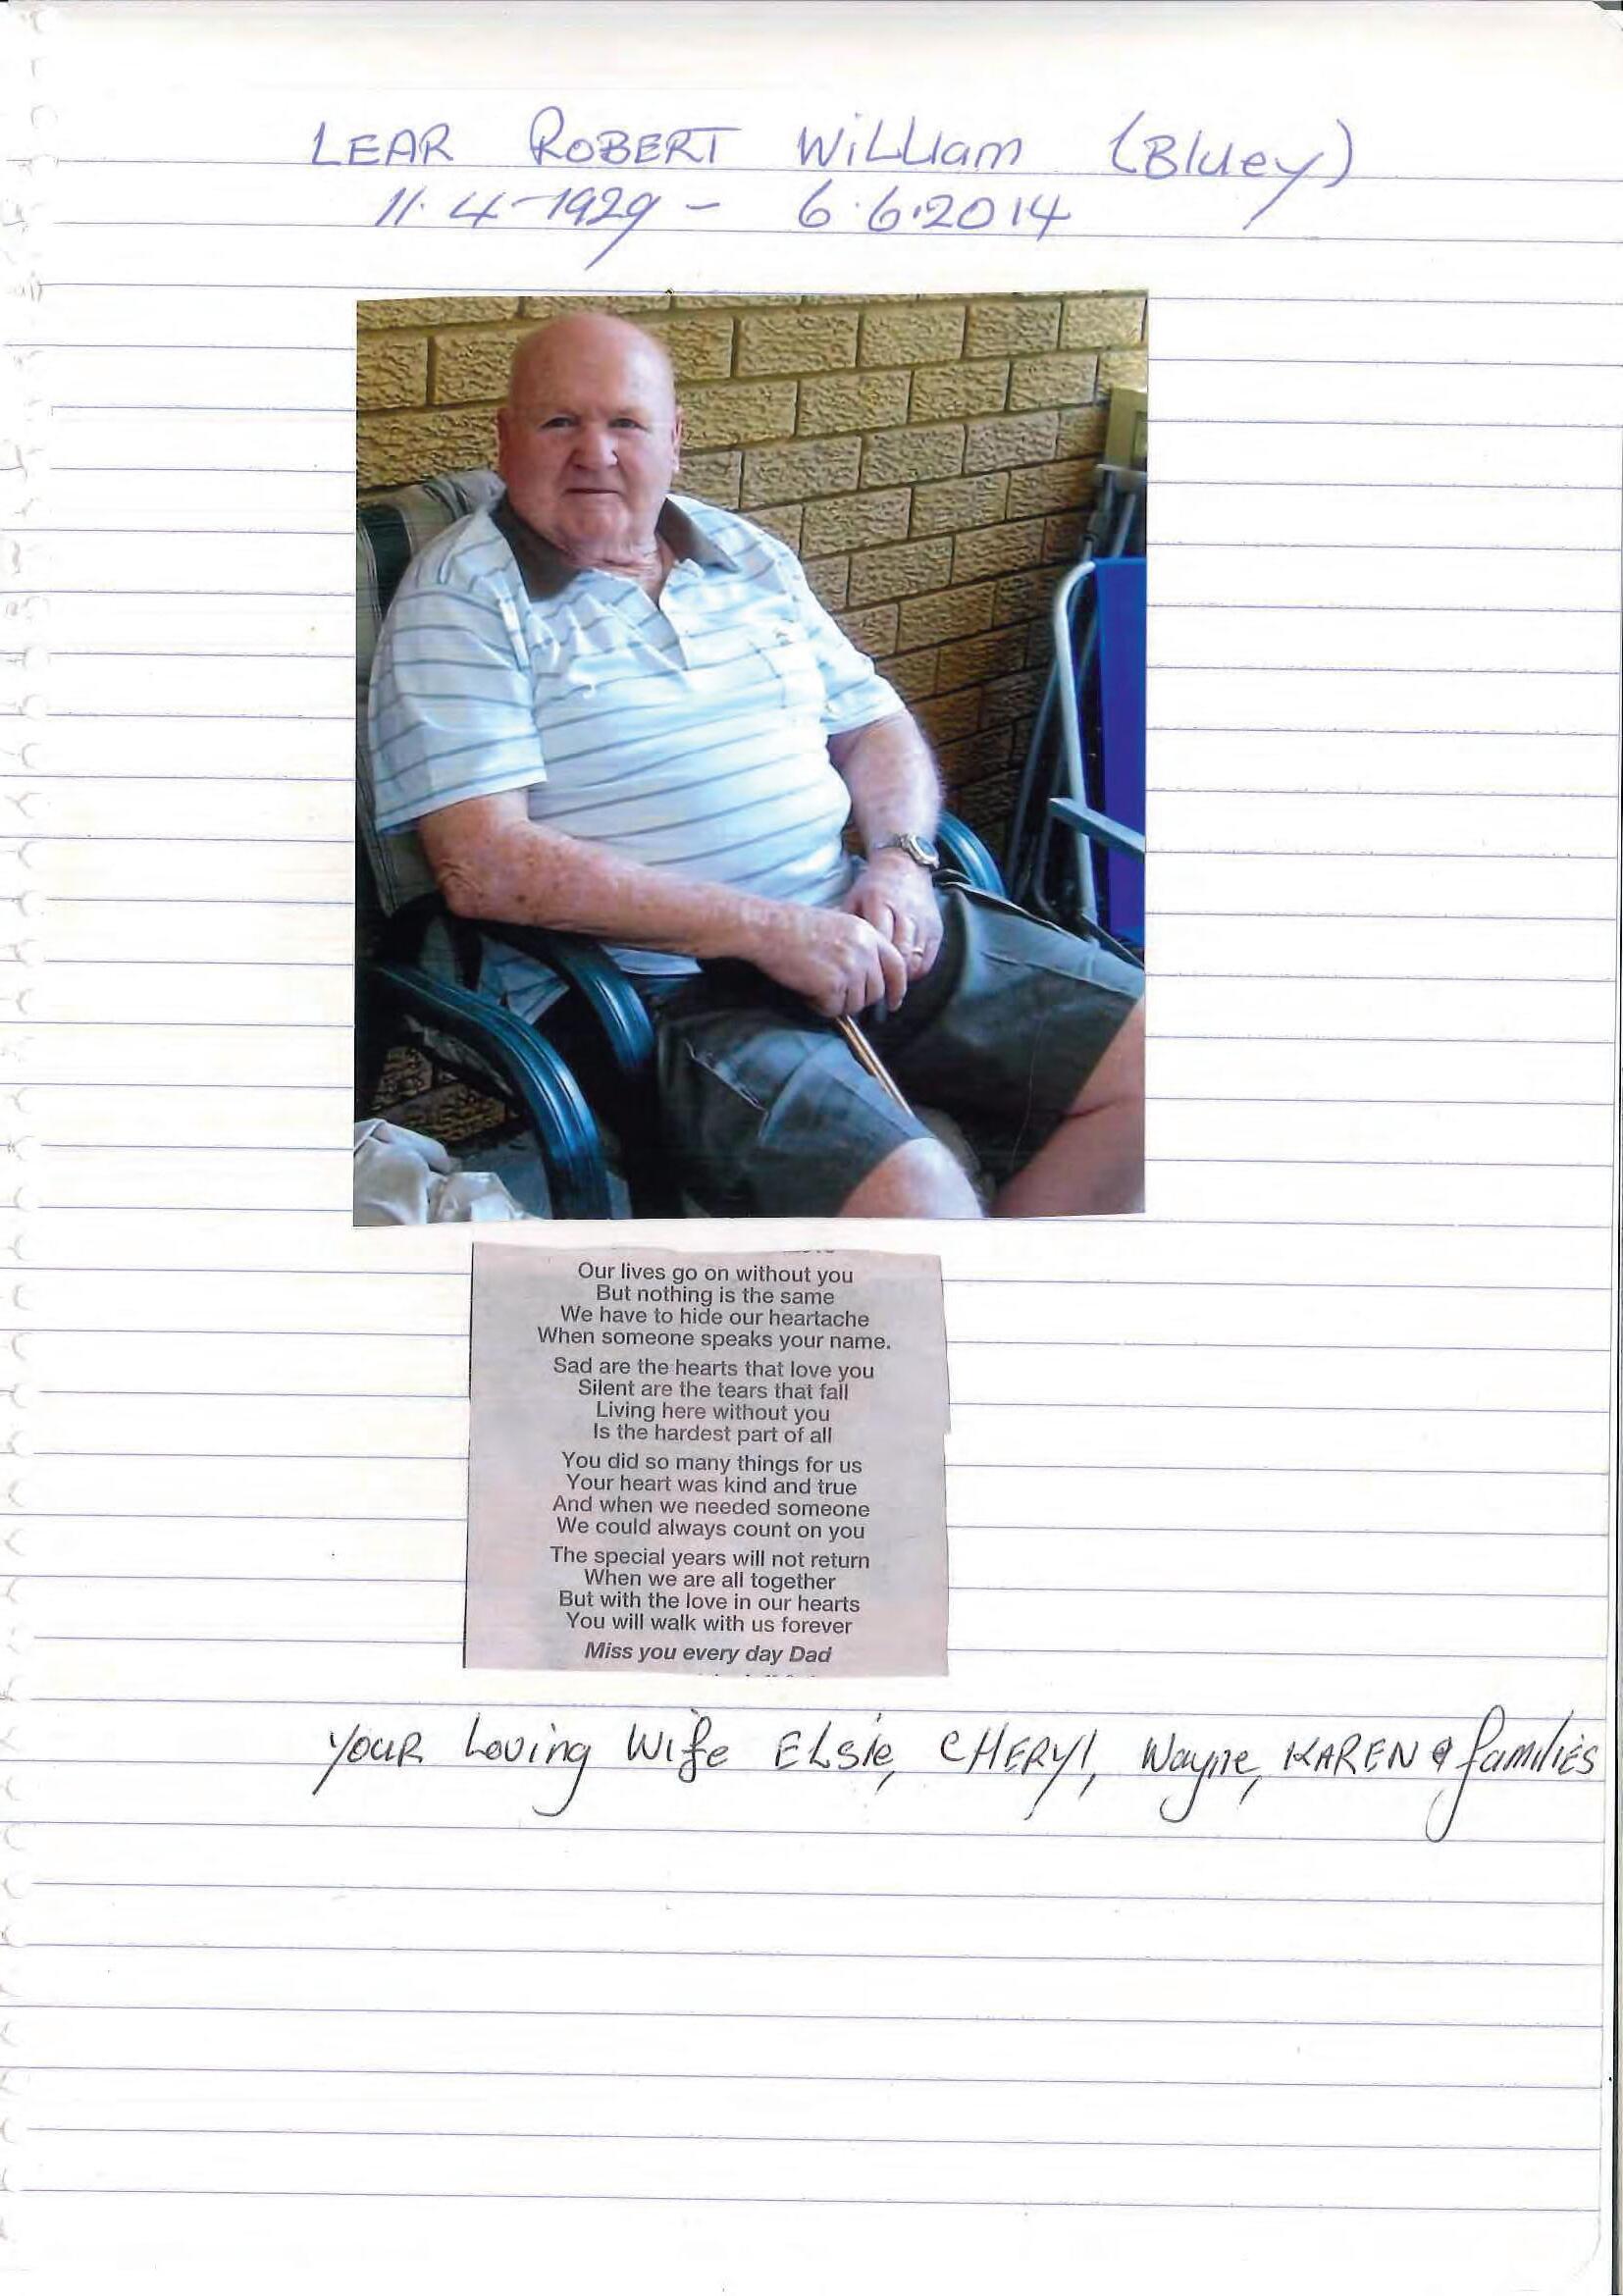 LEAR ROBERT WiLLiam (Bluey)
11.4-1929 - 6.6.2014
Our lives go on without you
But nothing is the same
We have to hide our heartache
When someone speaks your name.
Sad are the hearts that love you
Silent are the tears that fall
Living here without you
Is the hardest part of all
You did so many things for us
Your heart was kind and true
And when we needed someone
We could always count on you
The special years will not return
When we are all together
But with the love in our hearts
You will walk with us forever
Miss you every day Dad
YOUR Loving Wife ELsie, CHERYl, Wayne, KAREN & families